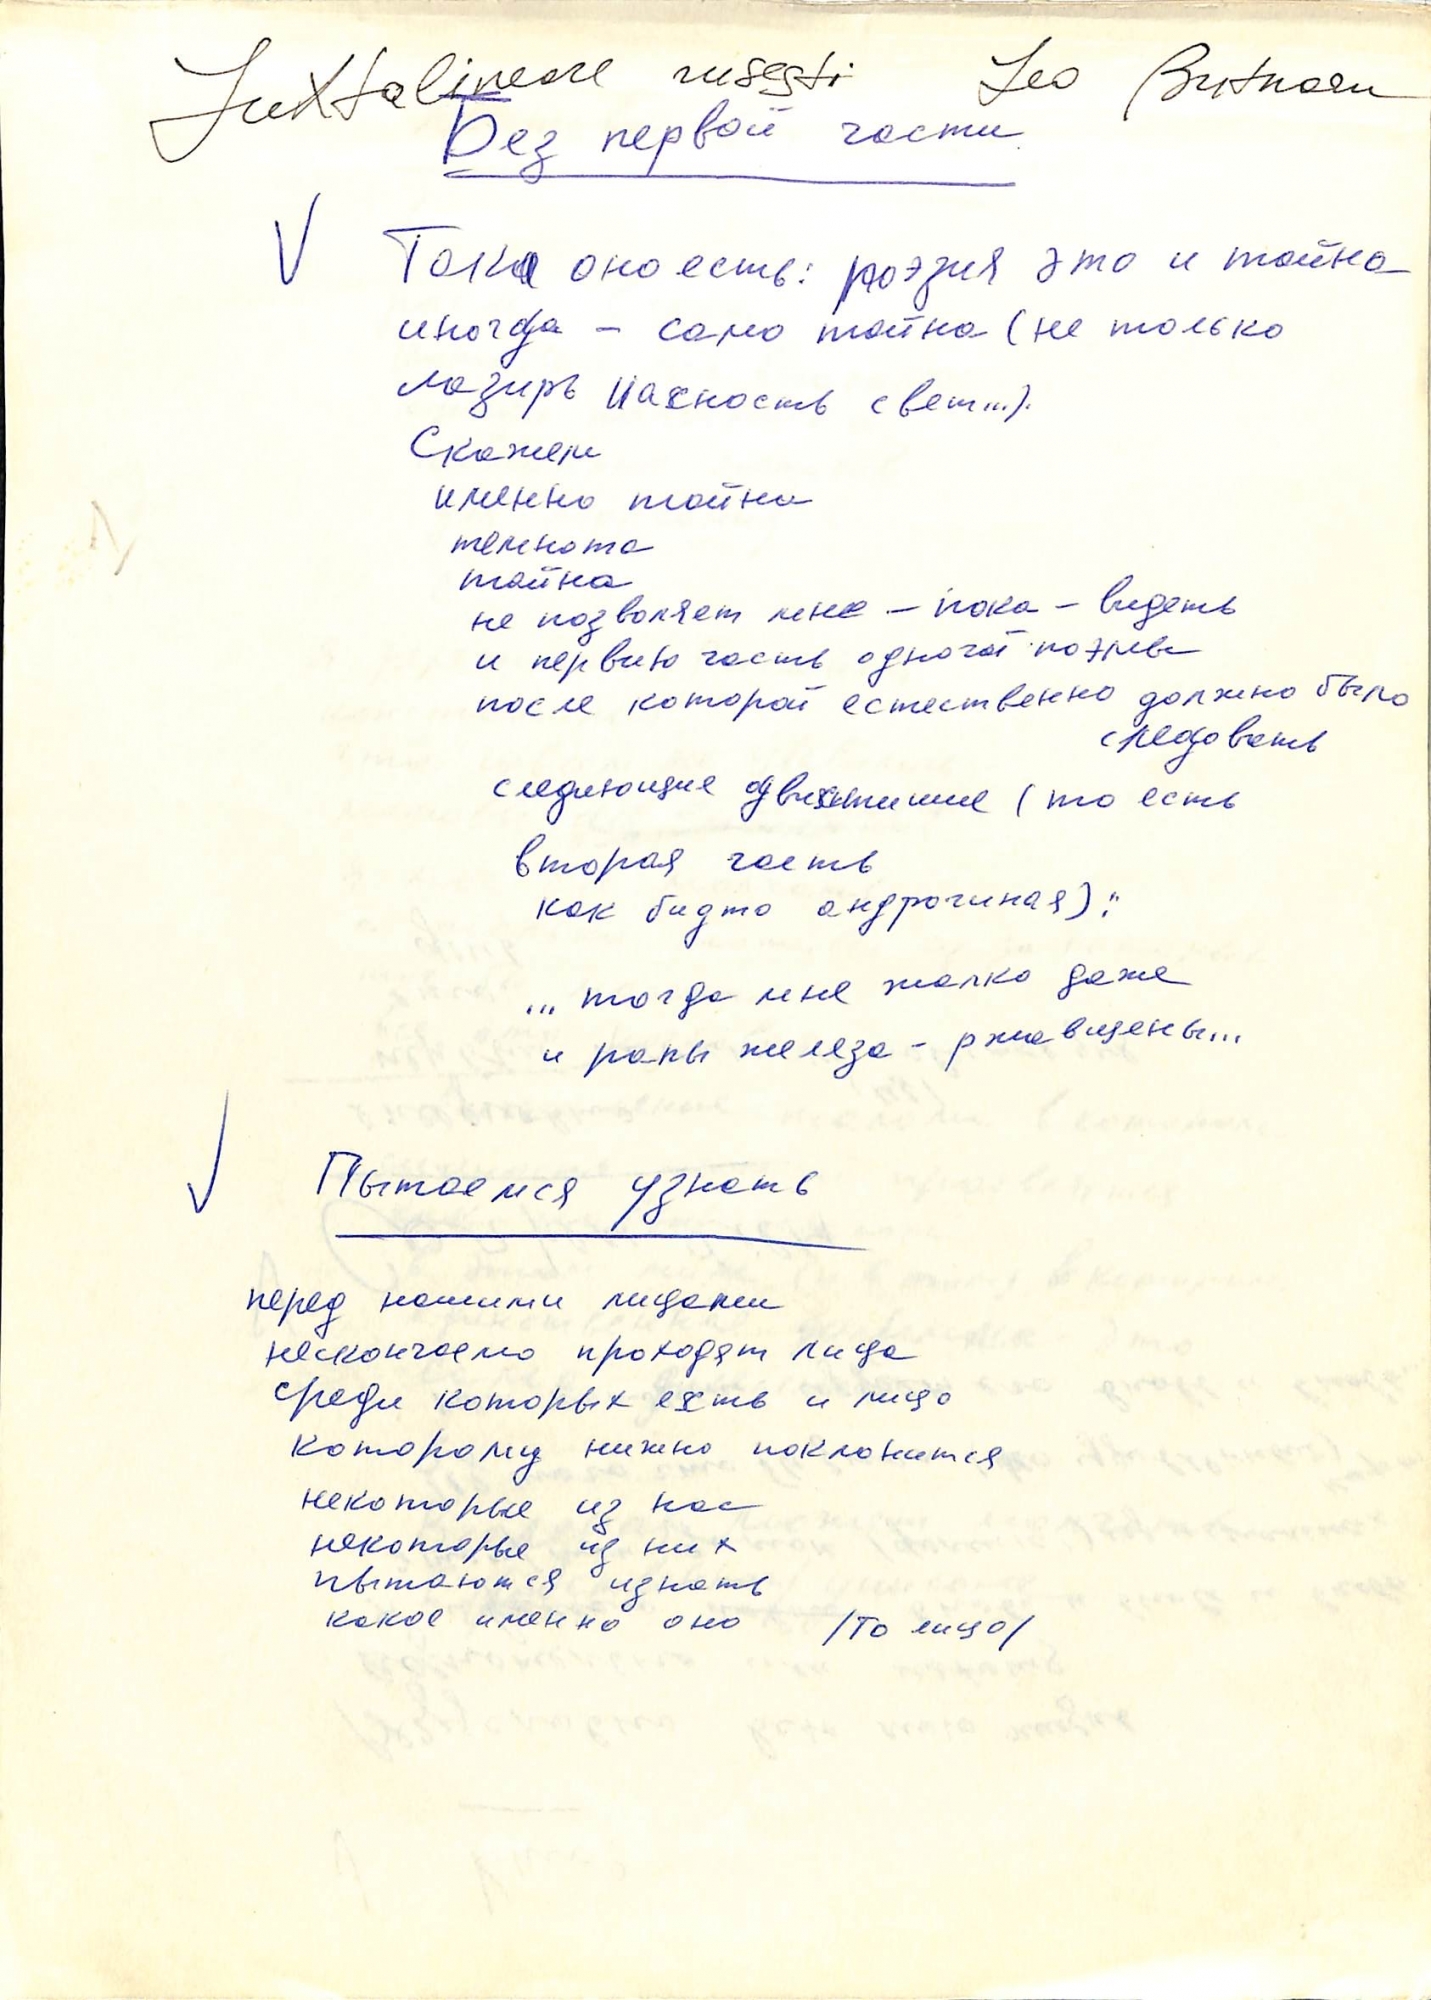 Juxtalineare rusești Leo Butnaru
Без первой части
Така оно есть: поэзия это и тайна
иногда – само тайна (не только
лазирь свет...).
Скажем
именно тайна
темнота
тайна
не позволяет мне – пока – видеть
и первию часть одногой поэмы
после которой естественно должно было
следовать
следиющие (то есть
вторая часть
как бидто андрогиная):
... тогда мне жалко даже
и раны железа – ржавщены...
Пытаемся узнать
перед нашими лицами
нескончаемо проходят лица
среди которых есть и лицо
которому нижно поклонится
некоторые из нас
некоторые из них
пытаются изнать
какое именно оно /то лицо/